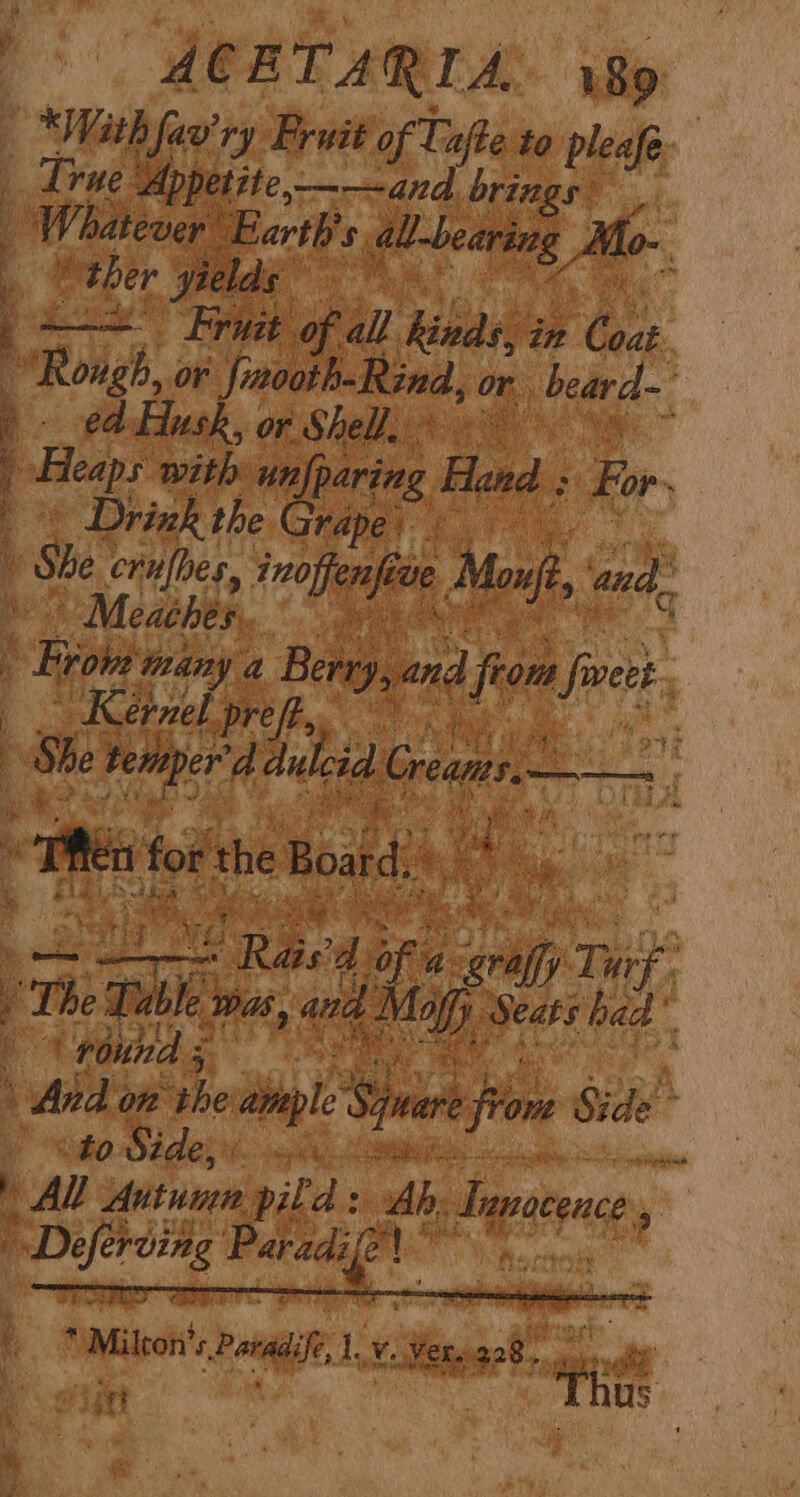 ACETARIA. 189
*With ſav'ry Fruit of Taſte to pleaſe
True Appetite,——and brings
Whatever Earth's all-bearing Mo-
ther yields
—— Fruit of all kinds, in Coat
Rough, or ſmooth-Rind, or beard-
ed Husk, or Shell.
Heaps with unſparing Hand: For
Drink the Grape
She cruſhes, inoffenſive Mouſt, and
Meaches
From many a Berry, and from ſweet
Kernel preſt,
She temper'd dulcid Creams.——
Then for the Board.
—— Rais'd of a graſſy Turf
The Table was, and Moſſy Seats had
round;
And on the ample Square from Side
to Side,
All Autumn pil'd: Ah Innocence,
Deſerving Paradiſe!
* Milton's Paradiſe, l. v. ver. 228.
Thus